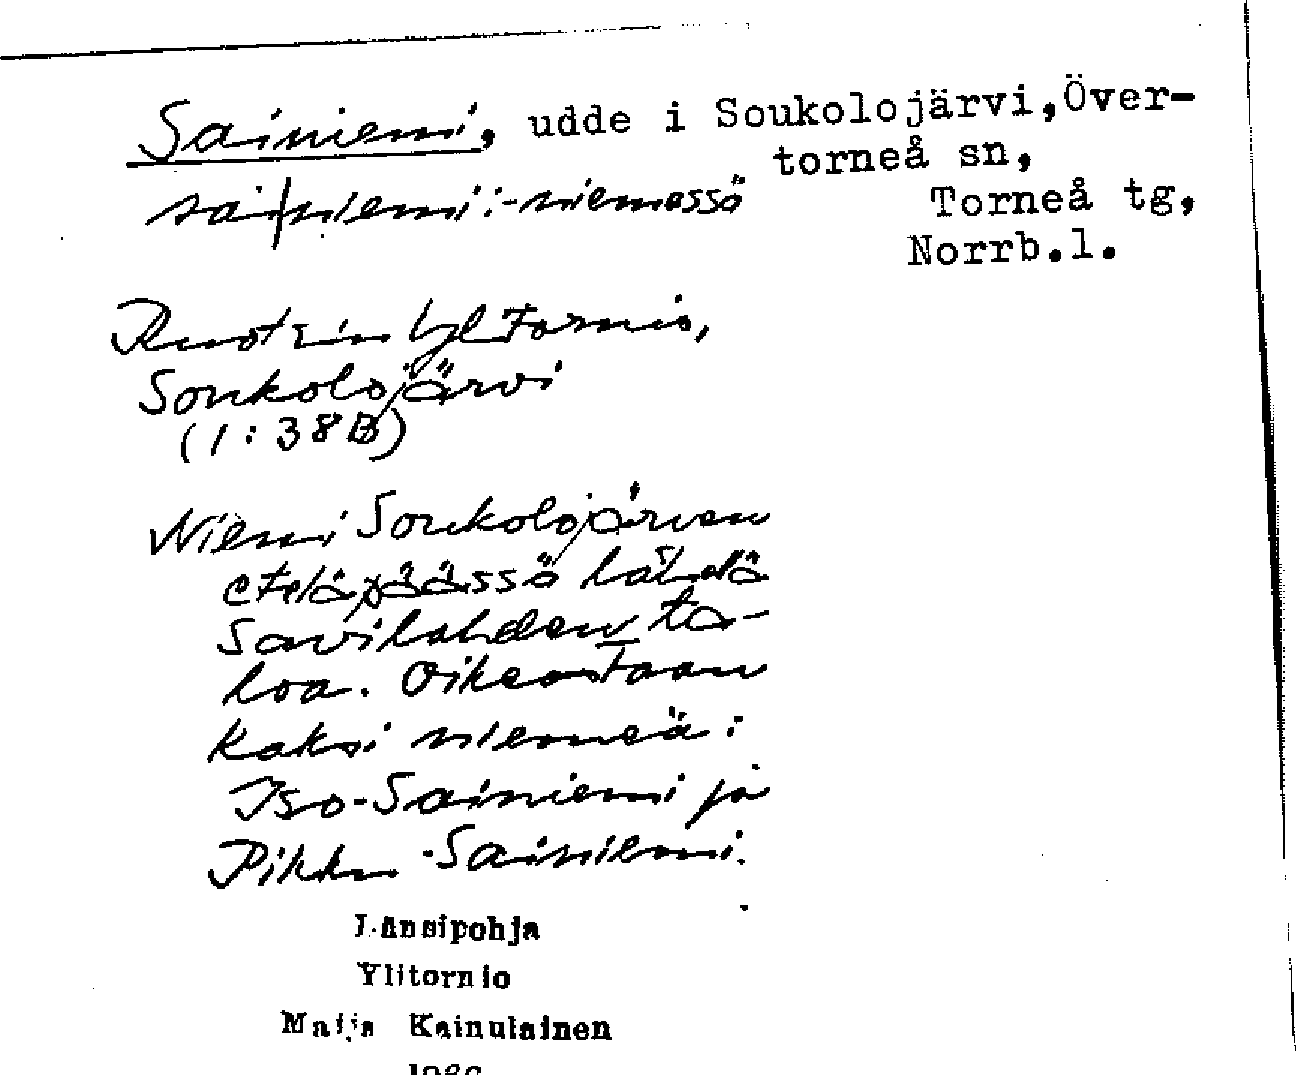 Sainiemi, udde i Soukolojärvi, Över-
torneå sn,
sai|niemi: -niemessä Torneå tg,
Norrb.l.
Ruotsin Yl. Tornio,
Soukolojärvi
(1:38B)
Niemi Soukolojärven
eteläpäässä lähellä
Savilahden ta-
loa. Oikeastaan
kaksi niemeä:
Iso-Sainiemi ja
Pikku-Sainiemi.
Länsipohja
Ylitornio
Maija Kainulainen